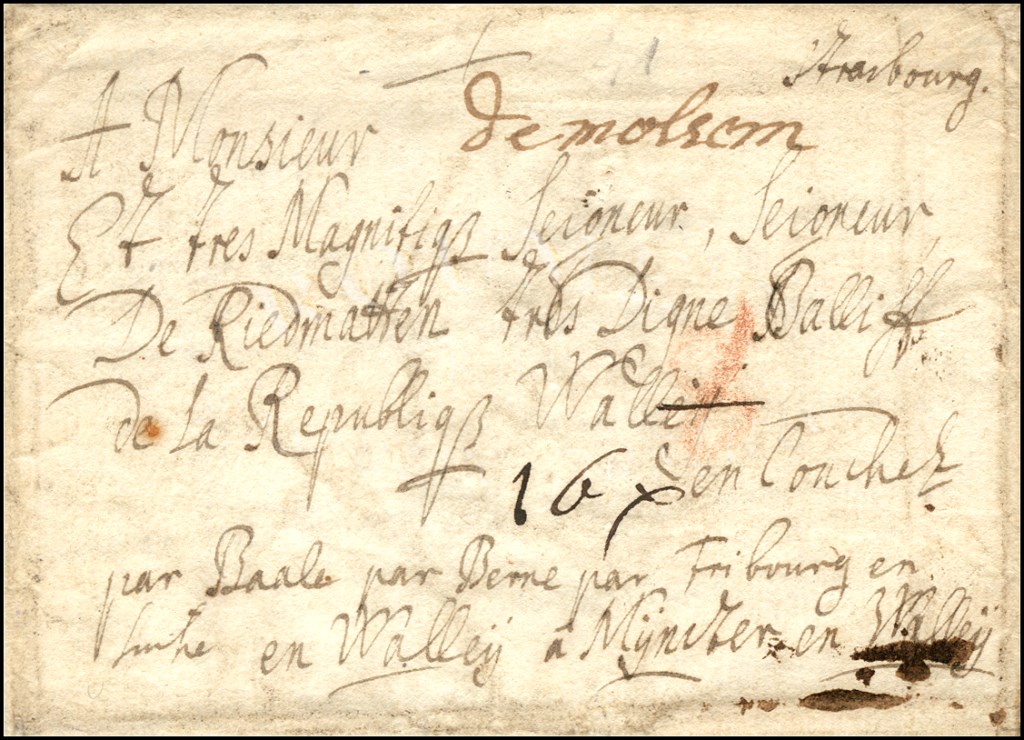 Strasbourg.
A Monsieur
De molsem
Et tres Magnifiqß Seioneur, Seioneur,
De Riedmatten tres Digne Balliff
de La Republiqß Walleÿ
16 en Conchez
par Baale par Berne par Fribourg en
en Walleÿ a Mÿnster en Walleÿ